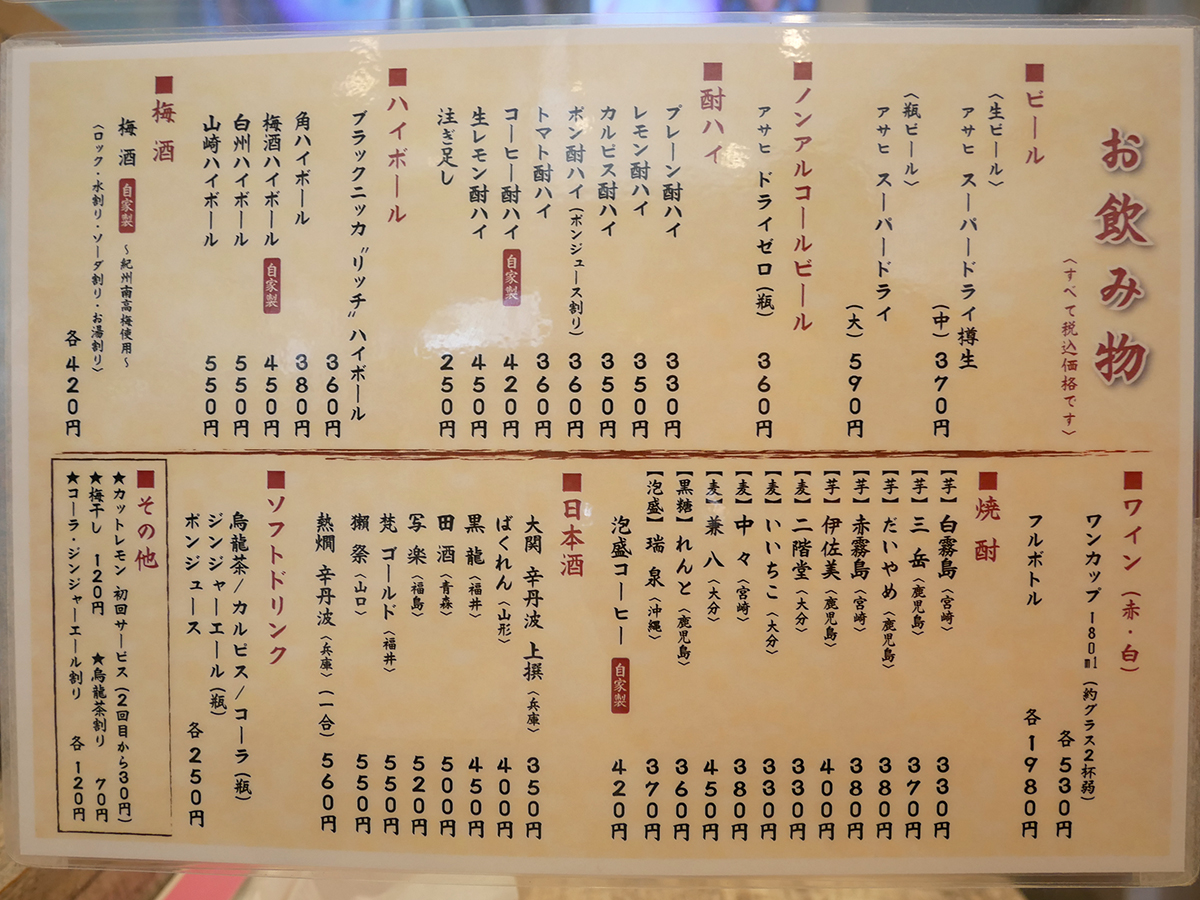 お飲み物
〈すべて税込価格です〉
■ビール
〈生ビール〉
アサヒ スーパードライ樽生
(中) 370円
〈瓶ビール〉
アサヒ スーパードライ
(大) 590円
■ノンアルコールビール
アサヒ ドライゼロ(瓶) 360円
■酎ハイ
プレーン酎ハイ 330円
レモン酎ハイ 350円
カルピス酎ハイ 350円
ポン酎ハイ(ポンジュース割り) 360円
トマト酎ハイ 360円
コーヒー酎ハイ 自家製 420円
生レモン酎ハイ 450円
注ぎ足し 250円
■ハイボール
ブラックニッカ"リッチ"ハイボール
360円
角ハイボール 380円
梅酒ハイボール 自家製 450円
白州ハイボール 550円
山崎ハイボール 550円
■梅酒
梅酒 自家製 ～紀州南高梅使用～
〈ロック・水割り・ソーダ割り・お湯割り〉
各420円
■ワイン(赤・白)
ワンカップ180ml(約グラス2杯弱)
各530円
フルボトル 各1980円
■焼酎
【芋】白霧島〈宮崎〉 330円
【芋】三岳〈鹿児島〉 370円
【芋】だいやめ〈鹿児島〉 380円
【芋】赤霧島〈宮崎〉 380円
【芋】伊佐美〈鹿児島〉 400円
【麦】二階堂〈大分〉 330円
【麦】いいちこ〈大分〉 330円
【麦】中々〈宮崎〉 380円
【麦】兼八〈大分〉 450円
【黒糖】れんと〈鹿児島〉 360円
【泡盛】瑞泉〈沖縄〉 370円
泡盛コーヒー 自家製 420円
■日本酒
大関 辛丹波 上撰〈兵庫〉 350円
ばくれん〈山形〉 400円
黒龍〈福井〉 450円
田酒〈青森〉 500円
写楽〈福島〉 520円
梵 ゴールド〈福井〉 550円
獺祭〈山口〉 550円
熱燗 辛丹波〈兵庫〉(一合) 560円
■ソフトドリンク
烏龍茶/カルピス/コーラ(瓶)
ジンジャーエール(瓶)
ポンジュース 各250円
■その他
★カットレモン 初回サービス(2回目から30円)
★梅干し 120円 ★烏龍茶割り 70円
★コーラ・ジンジャーエール割り 各120円